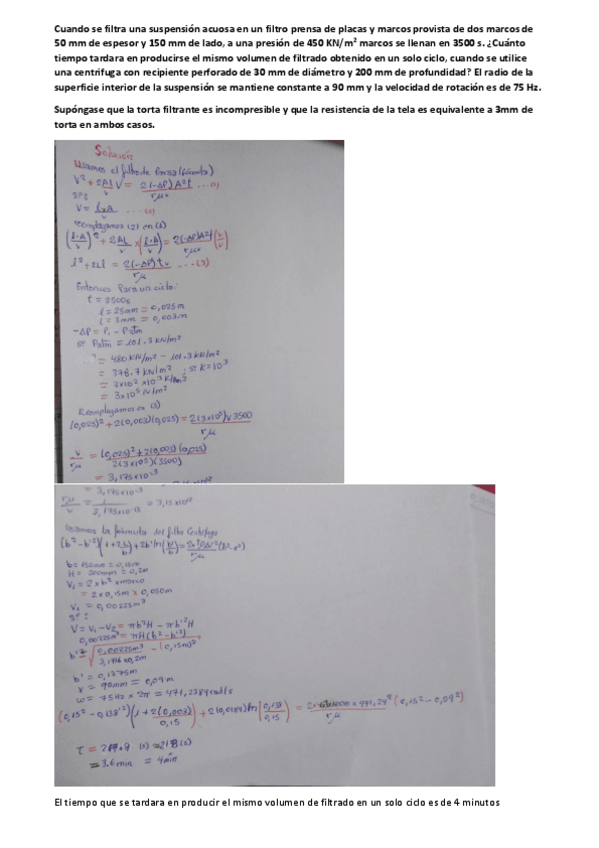 Cuando se filtra una suspensión acuosa en un filtro prensa de placas y marcos provista de dos marcos de
50 mm de espesor y 150 mm de lado, a una presión de 450 KN/m² marcos se llenan en 3500 s. ¿Cuánto
tiempo tardara en producirse el mismo volumen de filtrado obtenido en un solo ciclo, cuando se utilice
una centrifuga con recipiente perforado de 30 mm de diámetro y 200 mm de profundidad? El radio de la
superficie interior de la suspensión se mantiene constante a 90 mm y la velocidad de rotación es de 75 Hz.
Supóngase que la torta filtrante es incompresible y que la resistencia de la tela es equivalente a 3mm de
torta en ambos casos.
Solución
Usamos el filtro de Prensa (fórmula)
V² + 2AL/v V = 2(-ΔP)A²t/rμv ...(1)
V = l×A/v ...(2)
reemplazamos (2) en (1)
(l·A/v)² + 2AL/v × (l·A/v) = 2(-ΔP)A²t/rμv (v/v)
l² + 2Ll = 2(-ΔP)tv/rμ ...(3)
Entonces Para un ciclo:
t = 3500s
l = 25mm = 0,025m
L = 3mm = 0,003m
-ΔP = P₁ - Patm
si Patm = 101.3 KN/m²
= 480KN/m² - 101.3 KN/m²
= 378.7 KN/m² ; si K=10³
= 3x10⁵ N/m²
Reemplazamos en (3)
(0,025)² + 2(0,003)(0,025) = 2(3x10⁵)v 3500/rμ
v/rμ = (0,025)² + 2(0,003)(0,025)/2(3x10⁵)(3500)
= 3,175x10⁻¹³
= 3,175x10⁻¹³
rμ/v = 1/3,175x10⁻¹³ = 3,15x10¹²
Usamos la fórmula del filtro Centrífugo
b = 150mm = 0,15m
H = 200mm = 0,2m
= 2 x 0,15m x 0,050m
V₁ = 0,00225m³
V = V₁ - V₂ = πb²H - πb'²H
0,00225m³ = πH(b² - b'²)
b' = √ 0,00225m³/3,1416x0,2m - (0,15m)²
b' = 0,1375m
x = 90mm = 0,09m
ω = 75Hz x 2π = 471,2389rad/s
= 3.6 min = 4min
El tiempo que se tardara en producir el mismo volumen de filtrado en un solo ciclo es de 4 minutos